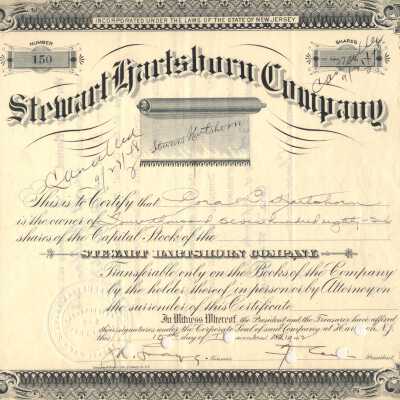 INCORPORATED UNDER THE LAWS OF THE STATE OF NEW JERSEY
NUMBER
150
SHARES
Stewart Hartshorn Company
Stewart Hartshorn
Cancelled
This is to Certify that Cora Hartshorn
is the owner of thousand hundred eighty-
shares of the Capital Stock of the
STEWART HARTSHORN COMPANY.
Transferable only on the Books of the Company
by the holder thereof in person or by Attorney on
the surrender of this Certificate.
In Witness Whereof, the President and the Treasurer have affixed
their signatures under the Corporate Seal of said Company at Harrison, N.J.
this day of
Treasurer
President